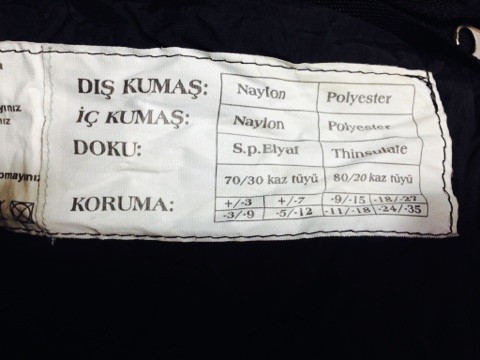 DIŞ KUMAŞ: Naylon Polyester
İÇ KUMAŞ: Naylon Polyester
DOKU: S.p.Elyaf Thinsulate
70/30 kaz tüyü 80/20 kaz tüyü
KORUMA: +/-3 +/-7 -9/-15 -18/-27
-3/-9 -5/-12 -11/-18 -24/-35